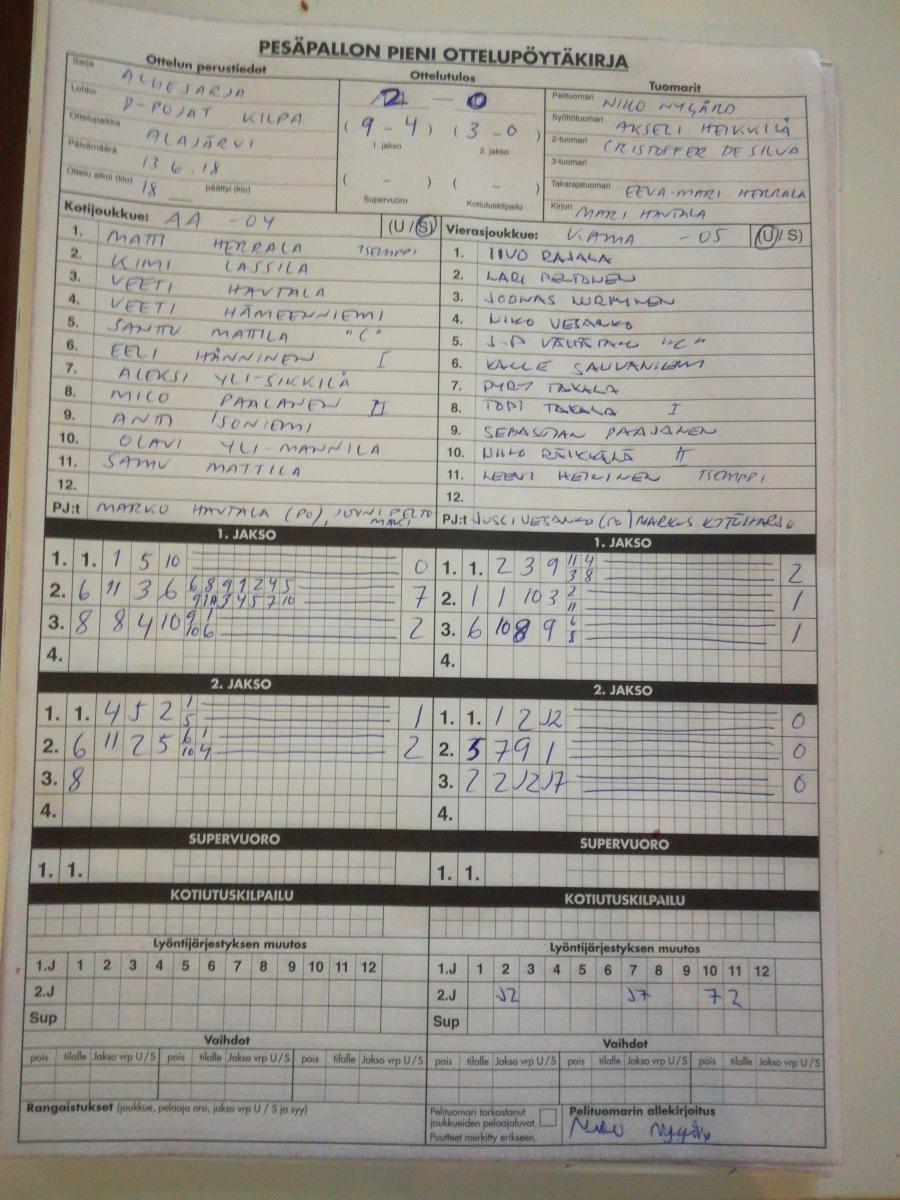 PESÄPALLON PIENI OTTELUPÖYTÄKIRJA
Ottelun perustiedot
Ottelutulos
Tuomarit
Sarja ALUESARJA
Lohko D-POJAT KILPA
Ottelupaikka ALAJÄRVI
Päivämäärä 13.6.18
Ottelu alkoi (klo) 18 päättyi (klo)
2 - 0
(9 - 4) (3 - 0)
1. jakso 2. jakso
( - ) ( - )
Supervuoro Kotiutuskilpailu
Pelituomari NIKO NYGÅRD
Syöttötuomari AKSELI HEIKKILÄ
2-tuomari CRISTOFFER DE SILVA
3-tuomari
Takarajatuomari EEVA-MARI HERRALA
Kirjuri MARI HAUTALA
Kotijoukkue: AA -04 (U / S)
1. MATTI HERRALA TSEMPPI
2. KIMI LASSILA
3. VEETI HAUTALA
4. VEETI HÄMEENNIEMI
5. SANTTU MATTILA "C"
6. EELI HÄNNINEN I
7. ALEKSI YLI-SIKKILÄ
8. MILO PAALANEN II
9. ANTTI ISONIEMI
10. OLAVI YLI-MANNILA
11. SAMU MATTILA
12.
PJ:t MARKO HAUTALA (PO), JOUNI PELTOMÄKI
Vierasjoukkue: V.AMA -05 (U / S)
1. IIVO RAJALA
2. LARI PELTONEN
3. JOONAS
4. NIKO VESANKO
5. J-P "C"
6. KALLE SAUVANIEMI
7. PYRY TAKALA
8. TOPI TAKALA I
9. SEBASTIAN PAAJANEN
10. NIILO RÄIKKÄLÄ II
11. LEEVI HEIKINEN TSEMPPI
12.
PJ:t JUSSI VESANKO (PO) MARKUS
1. JAKSO
1. 1. 1 5 10 0
2. 6 11 3 6 6 8 9 1 2 4 5 7
3. 8 8 4 10 9 1 2
10 6
4.
1. JAKSO
1. 1. 2 3 9 11 4 2
3 8
2. 1 1 10 3 2 1
11
3. 6 10 8 9 6 1
8
4.
2. JAKSO
1. 1. 4 5 2 1 1
5
2. 6 11 2 5 6 1 2
10 4
3. 8
4.
2. JAKSO
1. 1. 1 2 J2 0
2. 5 7 9 1 0
3. 2 2 J2 J7 0
4.
SUPERVUORO
1. 1.
SUPERVUORO
1. 1.
KOTIUTUSKILPAILU
KOTIUTUSKILPAILU
Lyöntijärjestyksen muutos
1.J 1 2 3 4 5 6 7 8 9 10 11 12
2.J
Sup
Lyöntijärjestyksen muutos
1.J 1 2 3 4 5 6 7 8 9 10 11 12
2.J J2 J7 7 2
Sup
Vaihdot
pois tilalle Jakso vrp U/S pois tilalle Jakso vrp U/S pois tilalle Jakso vrp U/S
Vaihdot
pois tilalle Jakso vrp U/S pois tilalle Jakso vrp U/S pois tilalle Jakso vrp U/S
Rangaistukset (joukkue, pelaaja nro, jakso vrp U / S ja syy)
Pelituomari tarkastanut
joukkueiden pelaajaluvat.
Puutteet merkitty erikseen.
Pelituomarin allekirjoitus